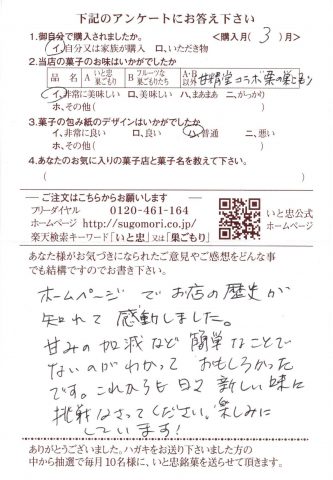 下記のアンケートにお答え下さい
1.御自分で購入されましたか。 <購入月( 3 )月>
イ.自分又は家族が購入 ロ.いただき物
2.当店の菓子のお味はいかがでしたか
品名 A いと忠巣ごもり B フルーツな巣ごもりたち A・B以外 甘精堂コラボ栗の巣ごもり
イ.非常に美味しい ロ.美味しい ハ.まあまあ ニ.がっかり
ホ.その他( )
3.菓子の包み紙のデザインはいかがでしたか
イ.非常に良い ロ.良い ハ.普通 ニ.悪い
ホ.その他( )
4.あなたのお気に入りの菓子店と菓子名を教えて下さい。
( )
ご注文はこちらからお願いします
フリーダイヤル 0120-461-164
ホームページ http://sugomori.co.jp/
楽天検索キーワード「いと忠」又は「巣ごもり」
いと忠公式
ホームページ
あなた様がお気づきになられたご意見やご感想をどんな事
でも結構ですのでお書き下さい。
ホームページでお店の歴史が
知れて感動しました。
甘みの加減など簡単なことで
ないのがわかっておもしろかった
です。これからも日々新しい味に
挑戦なさってください。楽しみに
しています!
ありがとうございました。ハガキをお送り下さいました方の
中から抽選で毎月10名様に、いと忠銘菓を送らせて頂きます。